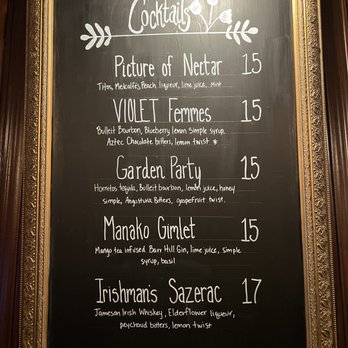 Cocktails
Picture of Nectar 15
Titos, Metcalfe's Peach liqueur, lime juice, mint
VIOLET Femmes 15
Bulleit Bourbon, Blueberry lemon simple syrup,
Aztec Chocolate bitters, lemon twist *
Garden Party 15
Hornitos tequila, Bulleit bourbon, lemon juice, honey
simple, Angostura Bitters, grapefruit twist.
Manako Gimlet 15
Mango tea infused Barr Hill Gin, lime juice, simple
syrup, basil
Irishman's Sazerac 17
Jameson Irish Whiskey, Elderflower liqueur,
peychaud bitters, lemon twist